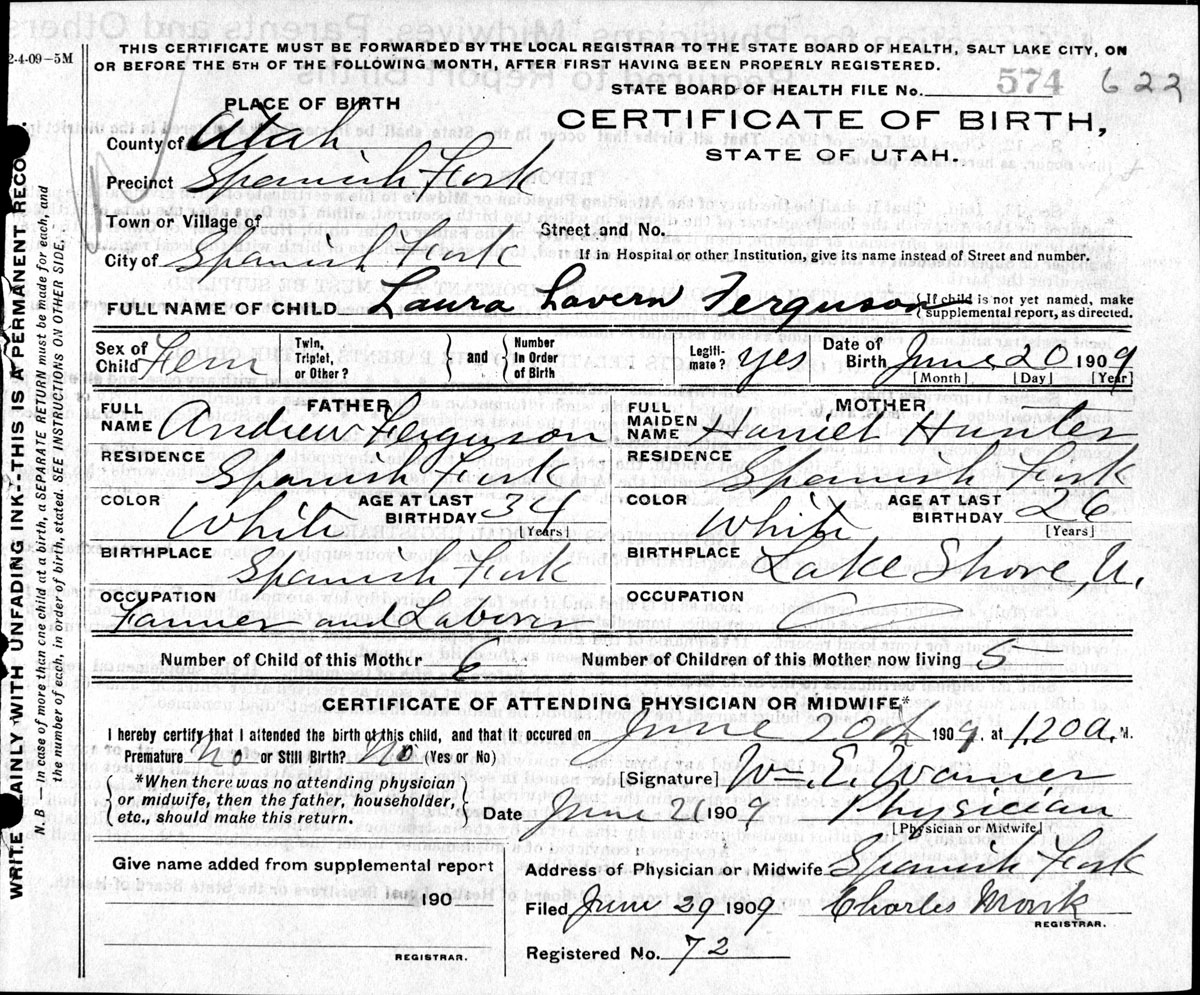 2-4-09—5M
THIS CERTIFICATE MUST BE FORWARDED BY THE LOCAL REGISTRAR TO THE STATE BOARD OF HEALTH, SALT LAKE CITY, ON
OR BEFORE THE 5TH OF THE FOLLOWING MONTH, AFTER FIRST HAVING BEEN PROPERLY REGISTERED.
STATE BOARD OF HEALTH FILE No. 574 622
PLACE OF BIRTH
CERTIFICATE OF BIRTH,
STATE OF UTAH.
County of Utah
Precinct Spanish Fork
Town or Village of
Street and No.
City of Spanish Fork
If in Hospital or other Institution, give its name instead of Street and number.
FULL NAME OF CHILD Laura Lavern Ferguson {If child is not yet named, make supplemental report, as directed.
Sex of Child Fem Twin, Triplet, or Other? } and { Number in Order of Birth Legitimate? yes Date of Birth June 20 1909
[Month] [Day] [Year]
FATHER
FULL NAME Andrew Ferguson
RESIDENCE Spanish Fork
COLOR White AGE AT LAST BIRTHDAY 34 [Years]
BIRTHPLACE Spanish Fork
OCCUPATION Farmer and Laborer
MOTHER
FULL MAIDEN NAME Harriet Hunter
RESIDENCE Spanish Fork
COLOR White AGE AT LAST BIRTHDAY 26 [Years]
BIRTHPLACE Lake Shore, U.
OCCUPATION
Number of Child of this Mother 6 Number of Children of this Mother now living
CERTIFICATE OF ATTENDING PHYSICIAN OR MIDWIFE*
I hereby certify that I attended the birth of this child, and that it occured on June 20th 1909, at 1.20 a.M.
Premature No or Still Birth? No (Yes or No)
{*When there was no attending physician
or midwife, then the father, householder,
etc., should make this return.}
[Signature] Wm. E. Warner
Date June 21 1909 Physician
[Physician or Midwife]
Give name added from supplemental report
190
REGISTRAR.
Address of Physician or Midwife Spanish Fork
Filed June 29 1909 Charles Monk
REGISTRAR.
Registered No. 72
WRITE PLAINLY WITH UNFADING INK--THIS IS A PERMANENT RECO
N.B.—In case of more than one child at a birth, a SEPARATE RETURN must be made for each, and
the number of each, in order of birth, stated. SEE INSTRUCTIONS ON OTHER SIDE.